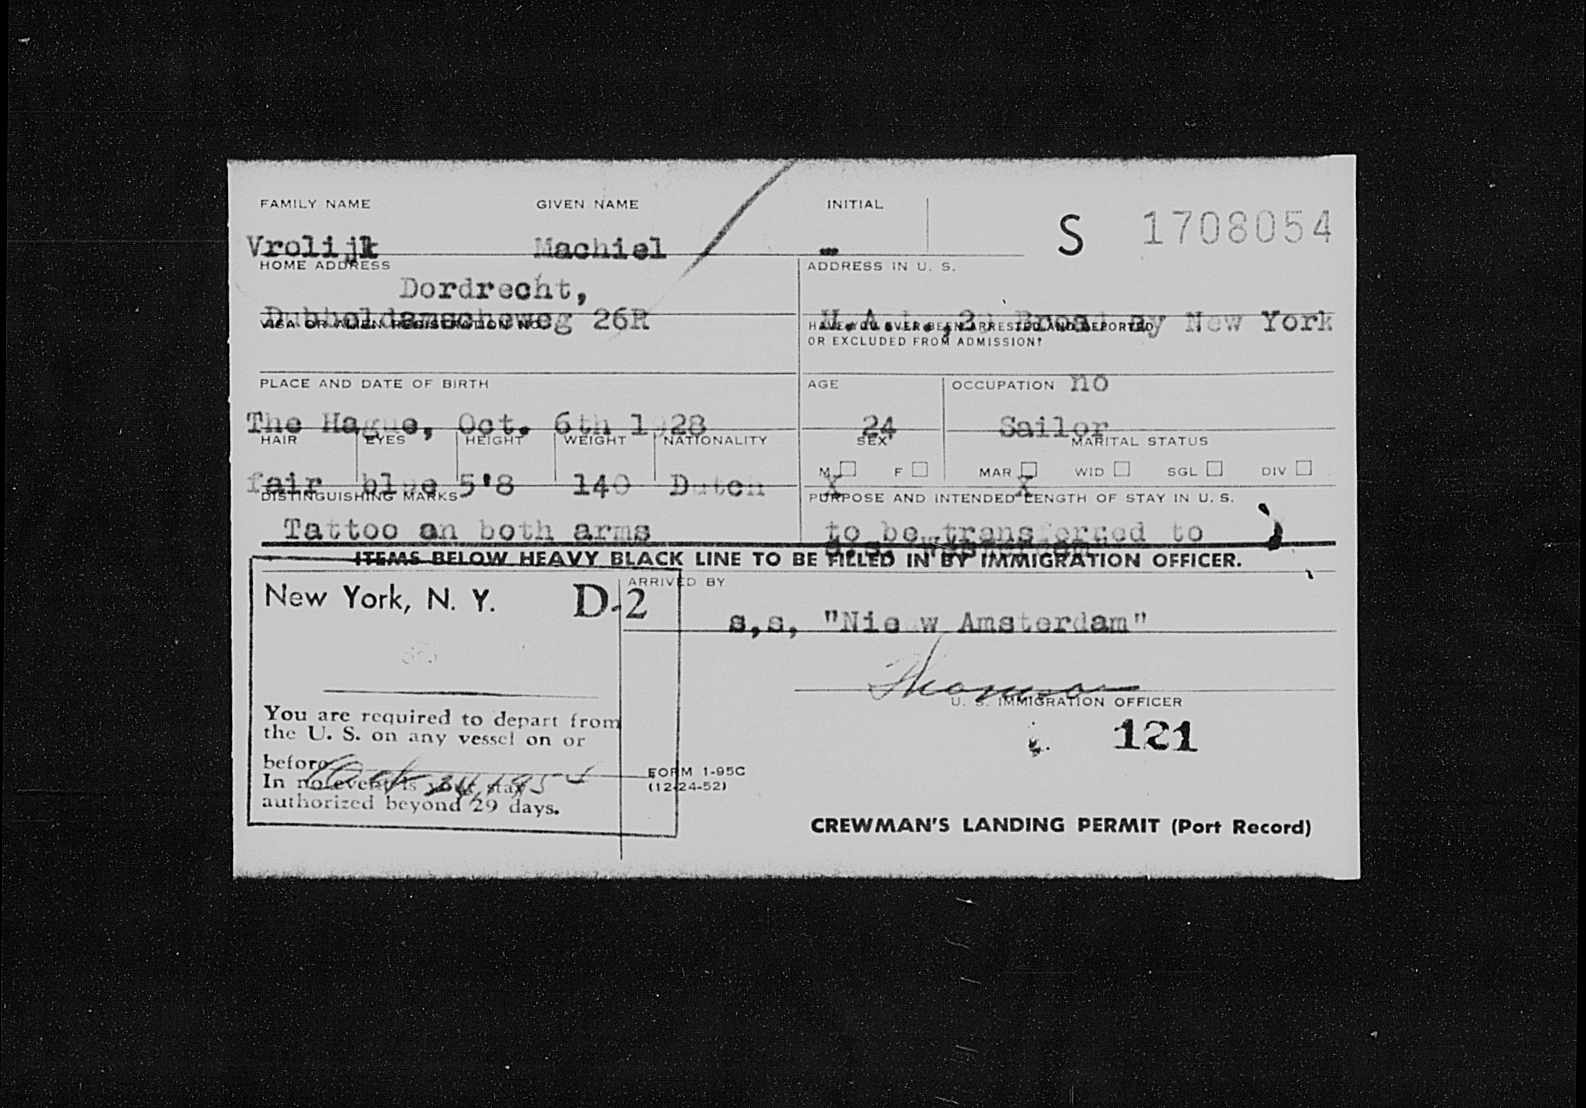 FAMILY NAME GIVEN NAME INITIAL
Vrolijk Machiel - S 1708054
HOME ADDRESS ADDRESS IN U. S.
Dordrecht,
Dubbeldamscheweg 26R H.A.L.,29 Broadway New York
VISA OR ALIEN REGISTRATION NO. HAVE YOU EVER BEEN ARRESTED AND DEPORTED
OR EXCLUDED FROM ADMISSION?
no
PLACE AND DATE OF BIRTH AGE OCCUPATION
The Hague, Oct. 6th 1928 24 Sailor
HAIR EYES HEIGHT WEIGHT NATIONALITY SEX MARITAL STATUS
M F MAR WID SGL DIV
fair blue 5'8 140 Dutch X X
DISTINGUISHING MARKS PURPOSE AND INTENDED LENGTH OF STAY IN U. S.
Tattoo an both arms to be transferred to
s.s.
ITEMS BELOW HEAVY BLACK LINE TO BE FILLED IN BY IMMIGRATION OFFICER.
New York, N. Y. D-2 ARRIVED BY
s,s, "Nieuw Amsterdam"
U. S. IMMIGRATION OFFICER
121
You are required to depart from
the U. S. on any vessel on or
before Oct
In no event is your stay
authorized beyond 29 days.
FORM I-95C
(12-24-52)
CREWMAN'S LANDING PERMIT (Port Record)